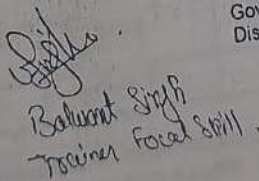 Gov
Dis
Balwant Singh
Trainer Focal Skill